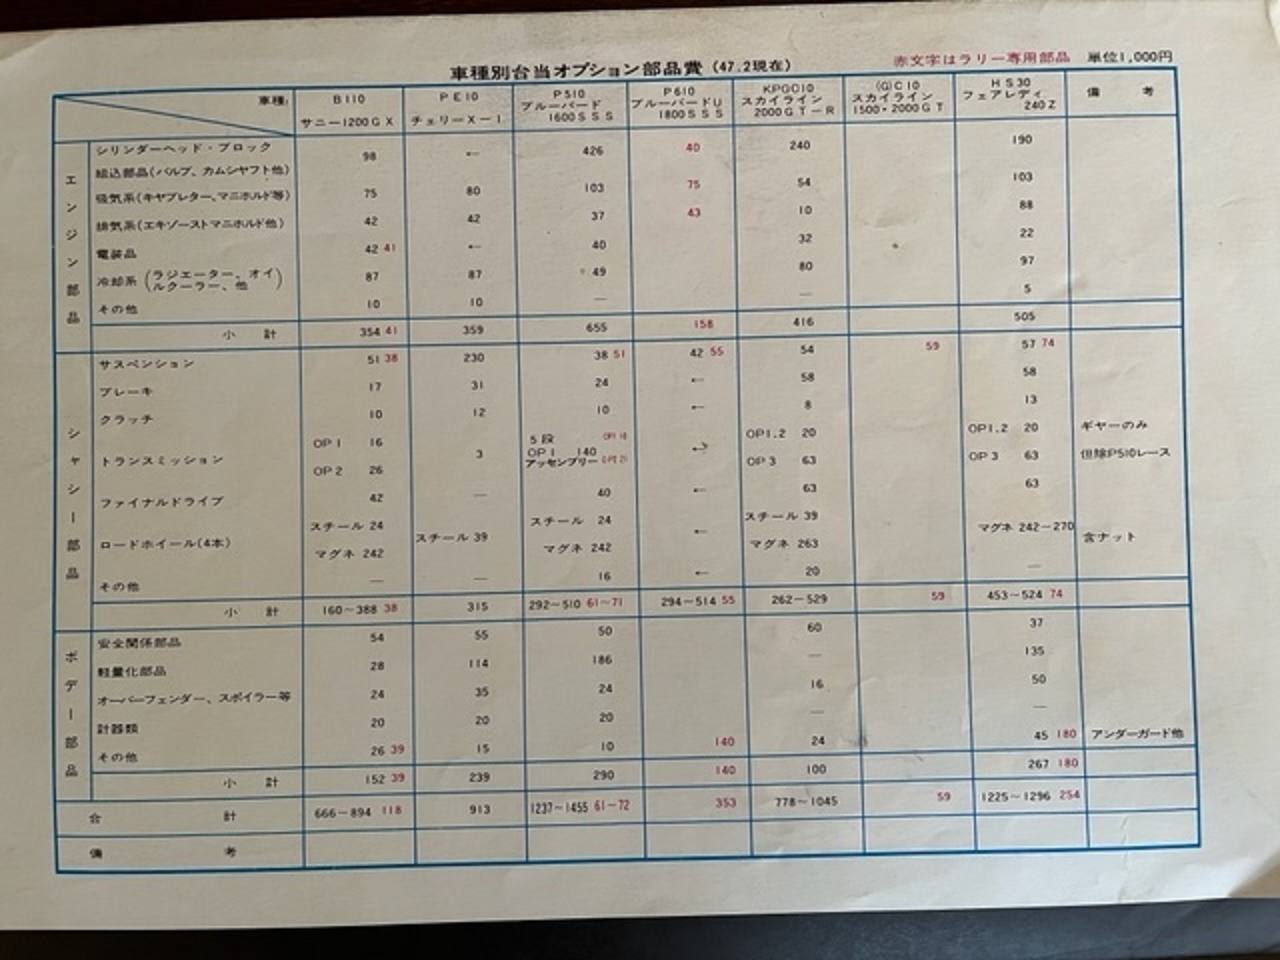 車種別台当オプション部品費 (47.2現在) 赤文字はラリー専用部品 単位1,000円
車種 B110 サニー1200GX PE10 チェリーX-1 P510 ブルーバード 1600SSS P610 ブルーバードU 1800SSS KPGC10 スカイライン 2000GT-R (G)C10 スカイライン 1500・2000GT HS30 フェアレディ 240Z 備考
エンジン部品
シリンダーヘッド・ブロック
組込部品(バルブ、カムシヤフト他) 98 ← 426 40 240 190
吸気系(キャブレター、マニホルド等) 75 80 103 75 54 103
排気系(エキゾーストマニホルド他) 42 42 37 43 10 88
電装品 42 41 ← 40 32 22
冷却系(ラジエーター、オイルクーラー、他) 87 87 49 80 97
その他 10 10 — — 5
小計 354 41 359 655 158 416 505
シャシー部品
サスペンション 51 38 230 38 51 42 55 54 59 57 74
ブレーキ 17 31 24 ← 58 58
クラッチ 10 12 10 ← 8 13
トランスミッション OP1 16 OP2 26 3 5段 OP1 140 アッセンブリー OP1.2 20 OP3 63 OP1.2 20 OP3 63 ギヤーのみ 但除P510レース
ファイナルドライブ 42 — 40 ← 63 63
ロードホイール(4本) スチール 24 マグネ 242 スチール 39 スチール 24 マグネ 242 ← スチール 39 マグネ 263 マグネ 242〜270 含ナット
その他 — — 16 ← 20 —
小計 160〜388 38 315 292〜510 61〜71 294〜514 55 262〜529 59 453〜524 74
ボデー部品
安全関係部品 54 55 50 60 37
軽量化部品 28 114 186 — 135
オーバーフェンダー、スポイラー等 24 35 24 16 50
計器類 20 20 20 — —
その他 26 39 15 10 140 24 45 180 アンダーガード他
小計 152 39 239 290 140 100 267 180
合計 666〜894 118 913 1237〜1455 61〜72 353 778〜1045 59 1225〜1296 254
備考